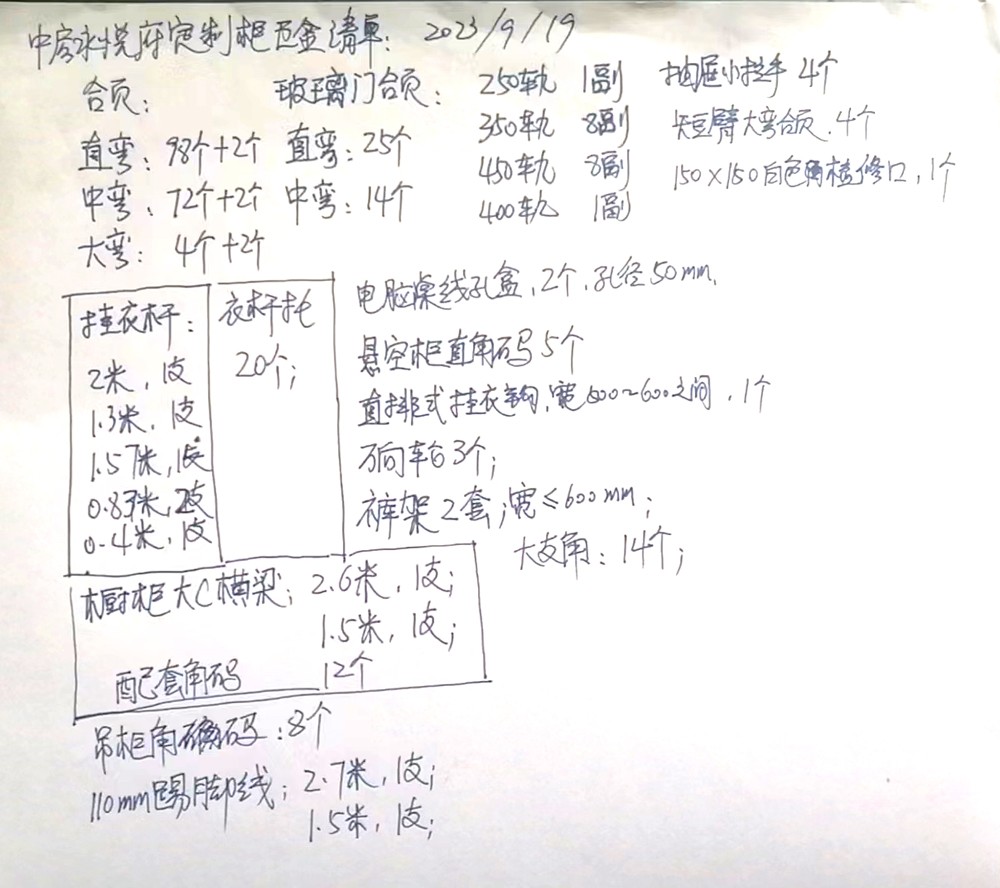 中房永悦府定制柜五金清单: 2023/9/19
合页:
直弯: 98个+2个
中弯: 72个+2个
大弯: 4个+2个
玻璃门合页:
直弯: 25个
中弯: 14个
250轨 1副
350轨 8副
450轨 8副
400轨 1副
抽屉小拉手 4个
短臂大弯合页. 4个
150×150白色检修口, 1个
挂衣杆:
2米, 1支
1.3米, 1支
1.57米, 1支
0.83米, 2支
0.4米, 1支
衣杆托
20个;
电脑桌线孔盒, 2个, 孔径50mm.
悬空柜直角码5个
直排式挂衣钩, 宽500~600之间, 1个
万向轮3个;
裤架2套; 宽≤600mm;
大支角: 14个;
橱柜大C横梁; 2.6米, 1支;
1.5米, 1支;
配套角码 12个
吊柜角码: 8个
110mm踢脚线; 2.7米, 1支;
1.5米, 1支;